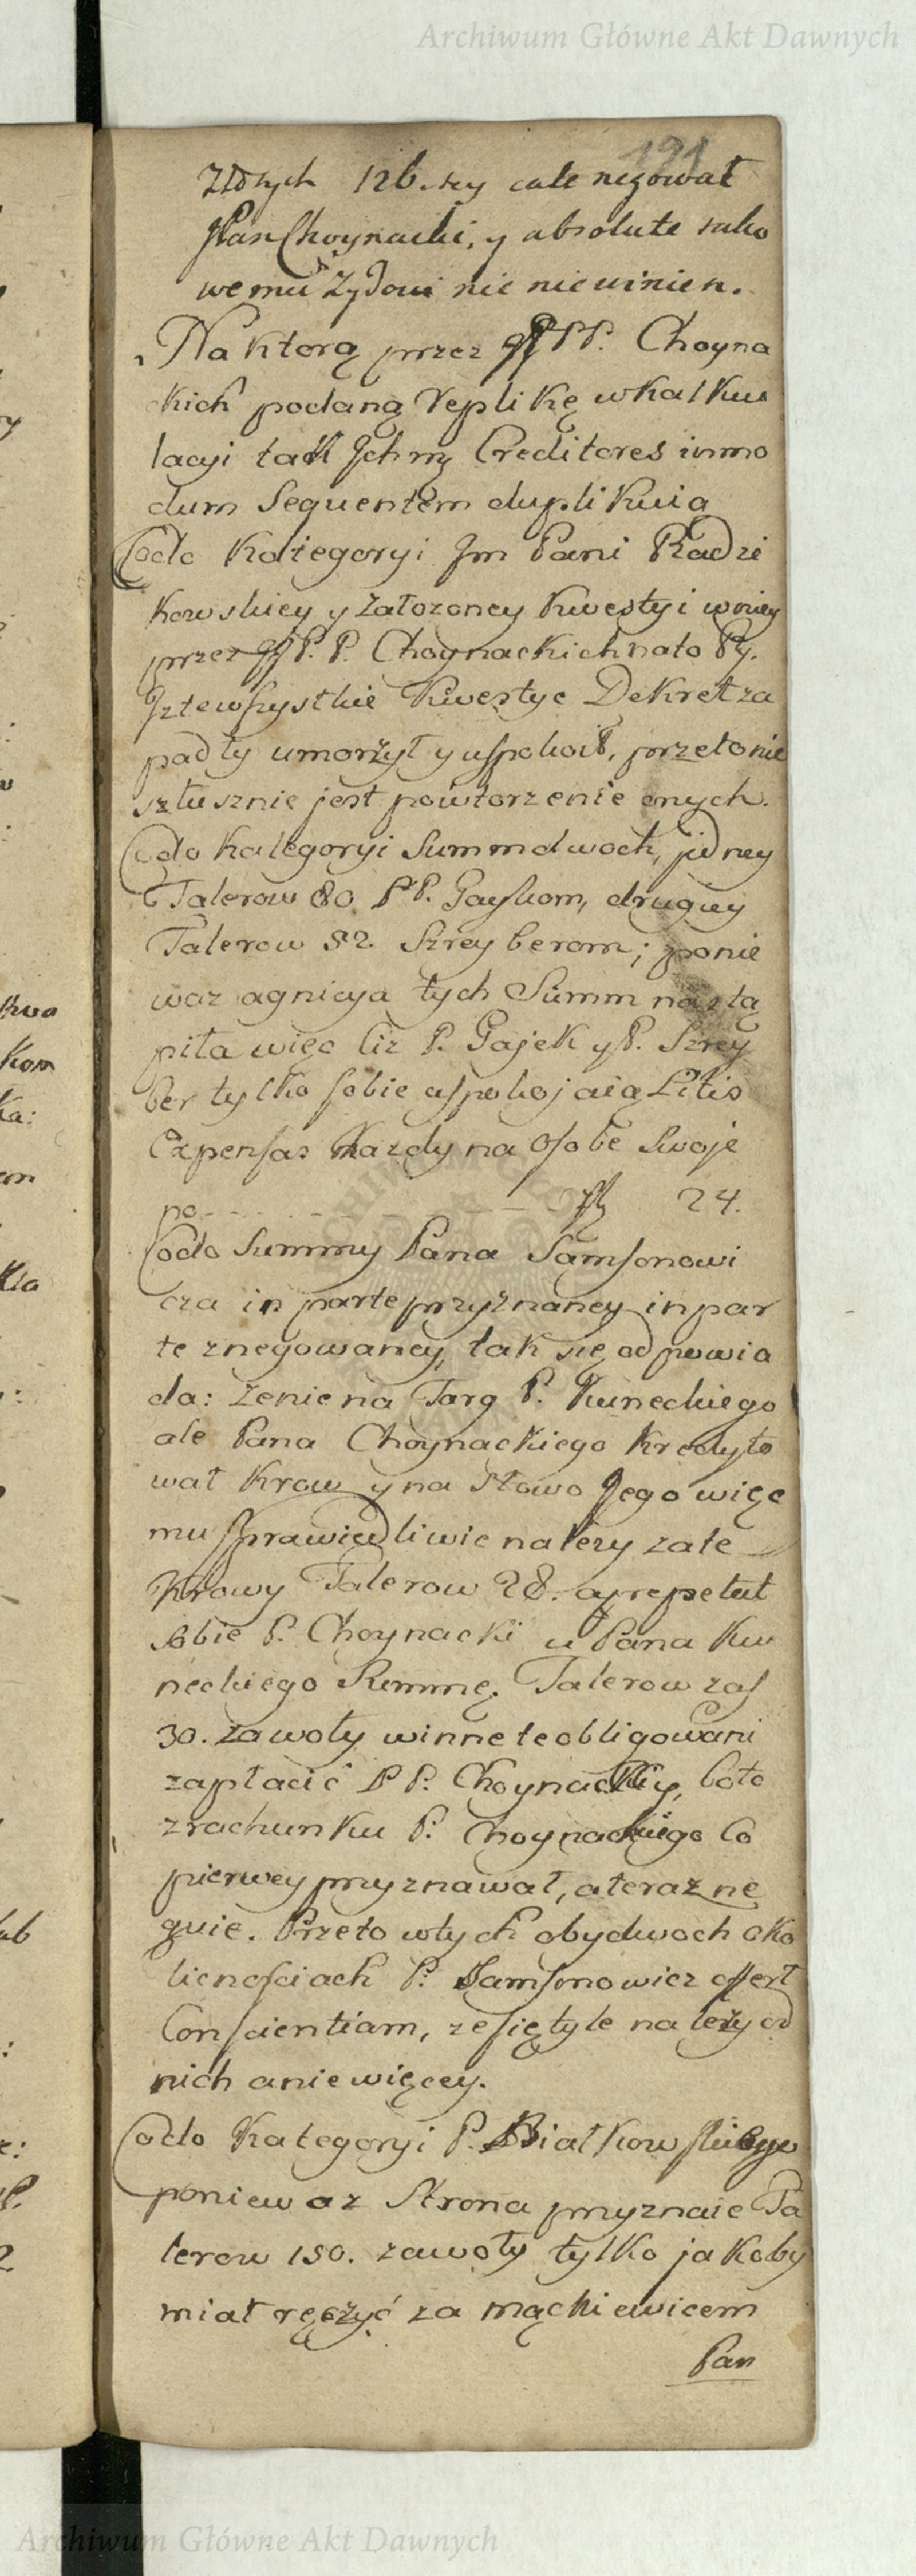 Archiwum Główne Akt Dawnych
121
Złotych 126. ktory cale negował
JPan Choynacki, y absolute tako
wemu Żydowi nic nie winien.
Na ktorą przez JJPP. Choyna
ckich podaną Replikę w Kalku
lacyi tak Ichmć Creditores in mo
dum Sequentem duplikuią
Co do Kategoryi Jm Pani Radzi
kowskiey y założoney kwestyi w niey
przez JJ P. P. Choynackich na to
Iż te wszystkie kwestye Dekret za
padły umorzył y uspokoił, przeto nie
sztusznie jest powtorzenie onych.
Co do kategoryi Summ dwoch, jedney
Talerow 80. PP. Gaykom, drugiey
Talerow 52. Szreyberom; ponie
waz agnicya tych Summ nastą
piła więc Ciż P. Gajek y P. Szrey
ber tylko sobie uspokojaią Litis
Expensas Kazdy na Osobe Swoje
po 24.
Co do Summy Pana Samsonowi
cza in parte przyznaney in par
te znegowaney, tak się odpowia
da: że nie na Targ P. Kuneckiego
ale Pana Choynackiego kredyto
wał Krow y na Słowo Jego więc
mu sprawiedliwie nalezy za te
Krowy Talerow 28. a
sobie P. Choynacki u Pana Ku
neckiego Summę. Talerow zaś
30. za woły winne te obligowani
zapłacić PP. Choynaccy, bo to
z rachunku P. Choynackiego Co
pierwey przyznawał, a teraz ne
guie. Przeto w tych obydwoch oko
licnościach P. Samsonowicz offert
Conscientiam, ze się tyle należy od
nich a nie więcey.
Co do Kategoryi P. Białkowskiego
poniewaz Strona przyznaie Ta
lerow 150. za woły tylko jakoby
miał ręczyć za Mackiewicem
Pan
Archiwum Główne Akt Dawnych